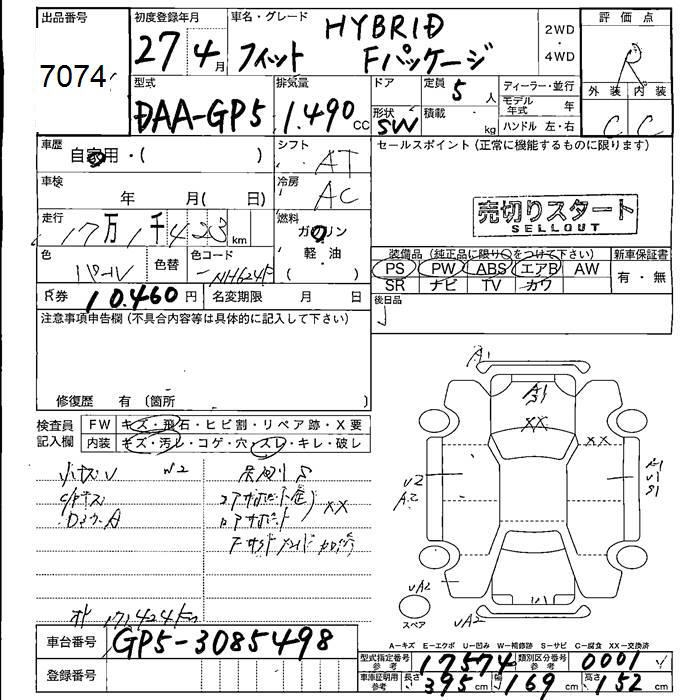 出品番号
7074
初度登録年月
27 4月
車名・グレード
HYBRID
フィット Fパッケージ
2WD
・
4WD
評価点
R
外装 内装
C C
型式
DAA-GP5
排気量
1.490 CC
ドア
形状
SW
定員
5人
積載
kg
ディーラー・並行
モデル年式 年
ハンドル 左・右
車歴
自家用・( )
シフト
AT
車検
年 月( 日)
冷房
AC
走行
17万1千423 km
燃料
ガソリン
軽・油
( )
色
パール
色替
色コード
NH624P
R券 10.460円
名変期限 月 日
セールスポイント(正常に機能するものに限ります)
売切りスタート
SELLOUT
装備品(純正品に限り○をつけて下さい)
PS PW ABS エアB AW
SR ナビ TV カワ
新車保証書
有・無
後日品
注意事項申告欄(不具合内容等は具体的に記入して下さい)
修復歴 有 〔箇所 〕
検査員記入欄
FW キズ・飛石・ヒビ割・リペア跡・X要
内装 キズ・汚レ・コゲ・穴・スレ・キレ・破レ
小キズ
W2
XX
171424km
A1
A1
XX
XX
U2
A2
A1
U1
S1
UA2
UA2
スペア
車台番号
GP5-3085498
登録番号
A-キズ E-エクボ U-凹み W-補修跡 S-サビ C-腐食 XX-交換済
型式指定番号 参考 17574
類別区分番号 参考 0001
車庫証明用 参考 長さ 395cm 幅 169cm 高さ 152cm